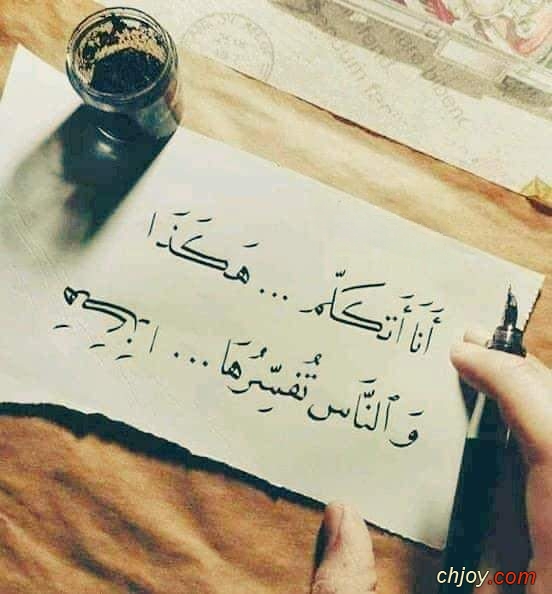 أَنَا أَتَكَلَّم ... هَكَذَا
وَٱلنَّاس تُفَسِّرُهَا ... هَكَذَا
chjoy.com